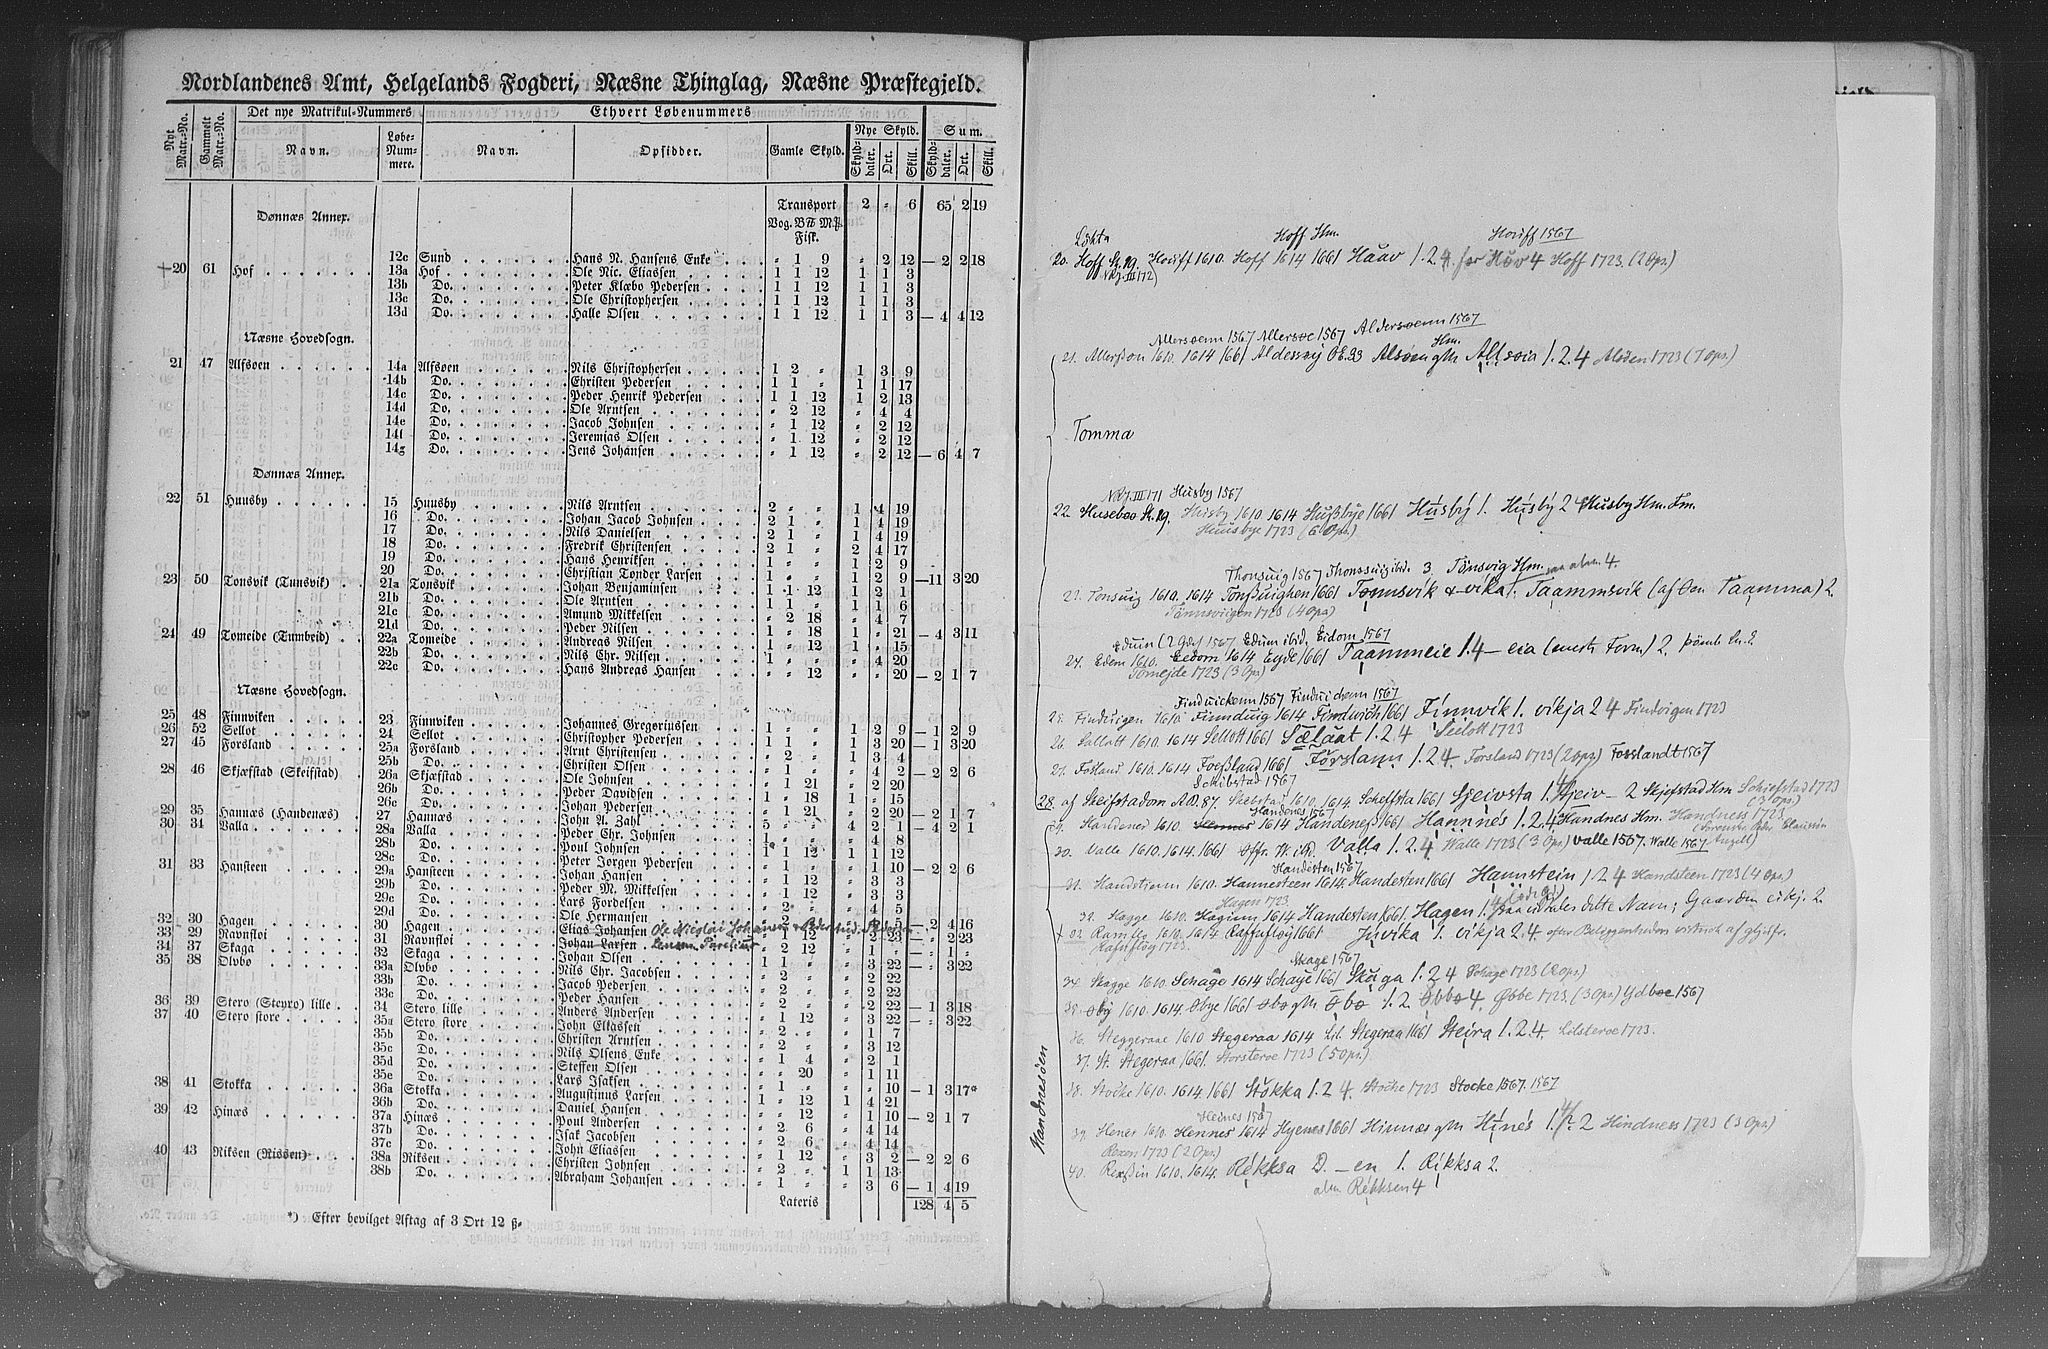 Nordlandenes Amt, Helgelands Fogderi, Næsne Thinglag, Næsne Præstegjeld.
Det nye Matrikul-Nummers Ethvert Løbenummers
Nyt Matr.-No. Gammelt Matr.-No. Navn. Løbe-Num-mere. Navn. Opsidder. Gamle Skyld. Nye Skyld. Skyld-daler. Ort. Skill. Sum. Skyld-daler. Ort. Skill.
Transport 2 " 6 65 2 19
Dønnæs Annex.
Vog. B℔ M℔
Fisk.
12c Sund Hans N. Hansens Enke " 1 9 " 2 12 — 2 2 18
20 61 Hof 13a Hof Ole Nic. Eliassen 1 1 12 1 1 3
13b Do. Peter Klæbo Pedersen 1 1 12 1 1 3
13c Do. Ole Christophersen 1 1 12 1 1 3
13d Do. Halle Olsen 1 1 12 1 1 3 — 4 4 12
Næsne Hovedsogn.
21 47 Alfsøen 14a Alfsøen Nils Christophersen 1 2 " 1 3 9
14b Do. Christen Pedersen 1 1 " 1 1 17
14c Do. Peder Henrik Pedersen 1 1 12 1 2 13
14d Do. Ole Arntsen " 2 12 " 4 4
14e Do. Jacob Johnsen " 1 12 " 2 12
14f Do. Jeremias Olsen " 1 12 " 2 12
14g Do. Jens Johansen " 1 12 " 2 12 — 6 4 7
Dønnæs Annex.
22 51 Huusby 15 Huusby Nils Arntsen 2 " " 1 4 19
16 Do. Johan Jacob Johnsen 2 1 " 1 4 19
17 Do. Nils Danielsen 2 1 " 1 4 19
18 Do. Fredrik Christensen 2 1 " 2 4 17
19 Do. Hans Henriksen 1 " " 1 2 9
20 Do. Christian Tønder Larsen 1 " " 1 2 9 — 11 3 20
23 50 Tonsvik (Tunsvik) 21a Tonsvik Johan Benjaminsen 1 1 12 1 2 1
21b Do. Ole Arntsen 1 1 " 1 1 6
21c Do. Amund Mikkelsen " 2 18 " 4 7
21d Do. Peder Nilsen 1 " 18 " " 21 — 4 3 11
24 49 Tomeide (Tumbeid) 22a Tomeide Andreas Nilsen 1 " 12 1 " 15
22b Do. Nils Chr. Nilsen 1 " " " 4 20
22c Do. Hans Andreas Hansen " " 12 " " 20 — 2 1 7
Næsne Hovedsogn.
25 48 Finnviken 23 Finnviken Johannes Gregoriussen 1 " " 1 2 9 — 1 2 9
26 52 Sellot 24 Sellot Christopher Pedersen 1 1 " 1 3 20 — 1 3 20
27 45 Forsland 25a Forsland Arnt Christensen " 2 " 1 3 4
25b Do. Christen Olsen " 1 " " 4 2 — 2 2 6
28 46 Skjæfstad (Skeifstad) 26a Skjæfstad Ole Johnsen " 1 21 " 2 20
26b Do. Peder Davidsen 1 " 18 1 " 15
26c Do. Johan Pedersen " 1 21 " 2 20 — 2 1 7
29 35 Hannæs (Handenæs) 27 Hannæs John A. Zahl 5 " " 4 2 1 — 4 2 1
30 34 Valla 28a Valla Peder Chr. Johnsen " 1 " " 4 8
28b Do. Poul Johnsen 1 1 12 1 1 12
28c Do. Peter Jørgen Pedersen " 1 " " 1 10 — 2 2 6
31 33 Hansteen 29a Hansteen Johan Hansen " 1 12 " 3 3
29b Do. Peder M. Mikkelsen " 1 12 " 3 3
29c Do. Lars Fordelsen " 2 " " 4 5
29d Do. Ole Hermansen " 2 " " 4 5 — 2 4 16
32 30 Hagen 30 Hagen Elias Johansen Ole Nicolai Johansen
33 29 Ravnfloi 31 Ravnfloi Johan Larsen " 1 12 " 2 23 — " 2 23
34 37 Skaga 32 Skaga Johan Olsen
35 38 Olvbo 33a Olvbo Nils Chr. Jacobsen
33b Do. Jacob Pedersen " 2 " " 2 22
33c Do. Peder Hansen " 2 " " 2 22
36 39 Stero (Steyro) lille 34 Stero lille Anders Andersen " 2 " " 2 22 — 1 3 18
37 40 Stero store 35a Stero store John Eliassen " 1 12 " 3 22 — " 3 22
35b Do. Christen Arntsen " 2 " " 1 7
35c Do. Nils Olsens Enke " 2 " " 3 12
35d Do. Steffen Olsen " 1 4 " 2 1
35e Do. Lars Isaksen " " 20 " 1 11
38 41 Stokka 36a Stokka Augustinus Larsen " 1 " " " 10 — 1 3 17*
36b Do. Daniel Hansen 1 " 12 1 4 21
39 42 Hinæs 37a Hinæs Poul Andersen " " 12 " 1 10 — 2 1 7
37b Do. Isak Jacobsen " 2 6 " 4 14
37c Do. John Eliassen " 2 6 " 4 14
40 43 Niksen (Nissen) 38a Niksen Christen Johnsen " 1 12 " 3 2 — 2 2 6
38b Do. Abraham Johansen " 2 " 1 1 13
" 1 " " 3 6 — 1 4 19
Lateris 128 4 5
*) Efter bevilget Aftag af 3 Ort 12 ß.
Løkta Hoff Hm. Houiff 1567
20. Hoff St. 19. Houiff 1610. Hoff 1614 1661 Håav 1.2.4. Høv 4 Hoff 1723. (2 Ops.)
NRJ. III 172)
Allersoenn 1567 Allersoe 1567 Aldersoenn 1567
Hm.
21. Allersøn 1610. 1614 1661 Aldersøy OE. 33 Alsøen gM. Allsøia 1.2.4 Alsøen 1723 (7 Ops.)
Tomma
NRJ. III 171 Husby 1567
22. Huseboo St. 19. Husby 1610 1614 Hußbye 1661 Husby 1. Husby 2 Husby Hm. Fm.
Huusbye 1723 (6 Ops.)
Thonsuig 1567 Thonssuig ibd. 3 Tønsvig Hm.
23. Tonsuig 1610. 1614 Tonßuighen 1661 Tommsvik & -vika 1. Taammsvik (af Øen Taamma) 2.
Tønnsvigen 1723 (4 Ops)
Eduin (2 Gde) 1567 Edum ibd. Eidom 1567
24. Edem 1610. Eedom 1614 Eyde 1661 Taammeie 1.4 — eia (mest Form) 2.
Tomejde 1723 (3 Ops)
Finduickenn 1567 Finduichenn 1567
25. Finduigen 1610. Finnduig 1614 Findwich 1661 Finnvik 1. vikja 2 4 Findvigen 1723
26. Sallott 1610. 1614 Sellott 1661 Sælaat 1.2.4 Seilott 1723
27. Fosland 1610. 1614 Foeßland 1661 Førslann 1.2.4. Forsland 1723 (2 Ops) Fosslandt 1567
Schibestad 1567
28. af Skeifstadom AB. 87. Skebstad 1610. 1614. Scheffsta 1661 Sjeivsta 1. Sjeiv — 2 Skjefstad Hm Schiefstad 1723
(3 Ops)
Handenes 1567
29. Handenes 1610. 1614 Handenes 1661 Hannnes 1.2.4 Handnes Hm. Handness 1723
30. Valle 1610. 1614. 1661 Valla 1.2.4 Walle 1723 (3 Ops) Valle 1567. Walle 1567
Handesten 1567
31. Handstienn 1610. Hannesteen 1614. Handesten 1661 Hannstein 1.2 4 Handsteen 1723 (4 Ops)
Hagen 1723
32. Hagge 1610. Hagium 1614 Handesten 1661. Hagen 1.4 dette Navn; Gaarden 2.
33. 1610. 1614. Raffnfløg 1661 Juvika 1. vikja 2.4.
Rafnfløg 1723.
Skage 1567
34. Skagge 1610. Schage 1614 Schaye 1661 Skaga 1.2 4 Schage 1723 (2 Ops)
35. Øby 1610. 1614. Øbye 1661 Øbo gM. Øbo 1.2 Øbbo 4. Øbbe 1723. (3 Ops) Ydboe 1567
36. Steggeraae 1610 Stegeraa 1614 Lil. Stegeraa 1661 Steira 1.2.4. Lilsteroe 1723.
37. St. Stegeraa 1661. Storsteroe 1723 (5 Ops)
38. Stocke 1610. 1614. 1661 Stokka 1.2 4. Stocke 1723 Stocke 1567. 1567
Heines 1567
39. Henes 1610. Hennes 1614 Hyenes 1661 Hinnæs gM. Hines 1. 2 Hindness 1723 (3 Ops)
Rexen 1723 (2 Ops)
40. Rexßin 1610. 1614. Rikksa D. — en 1. Rikksa 2.
alm. Rikksen 4
Handnesøen